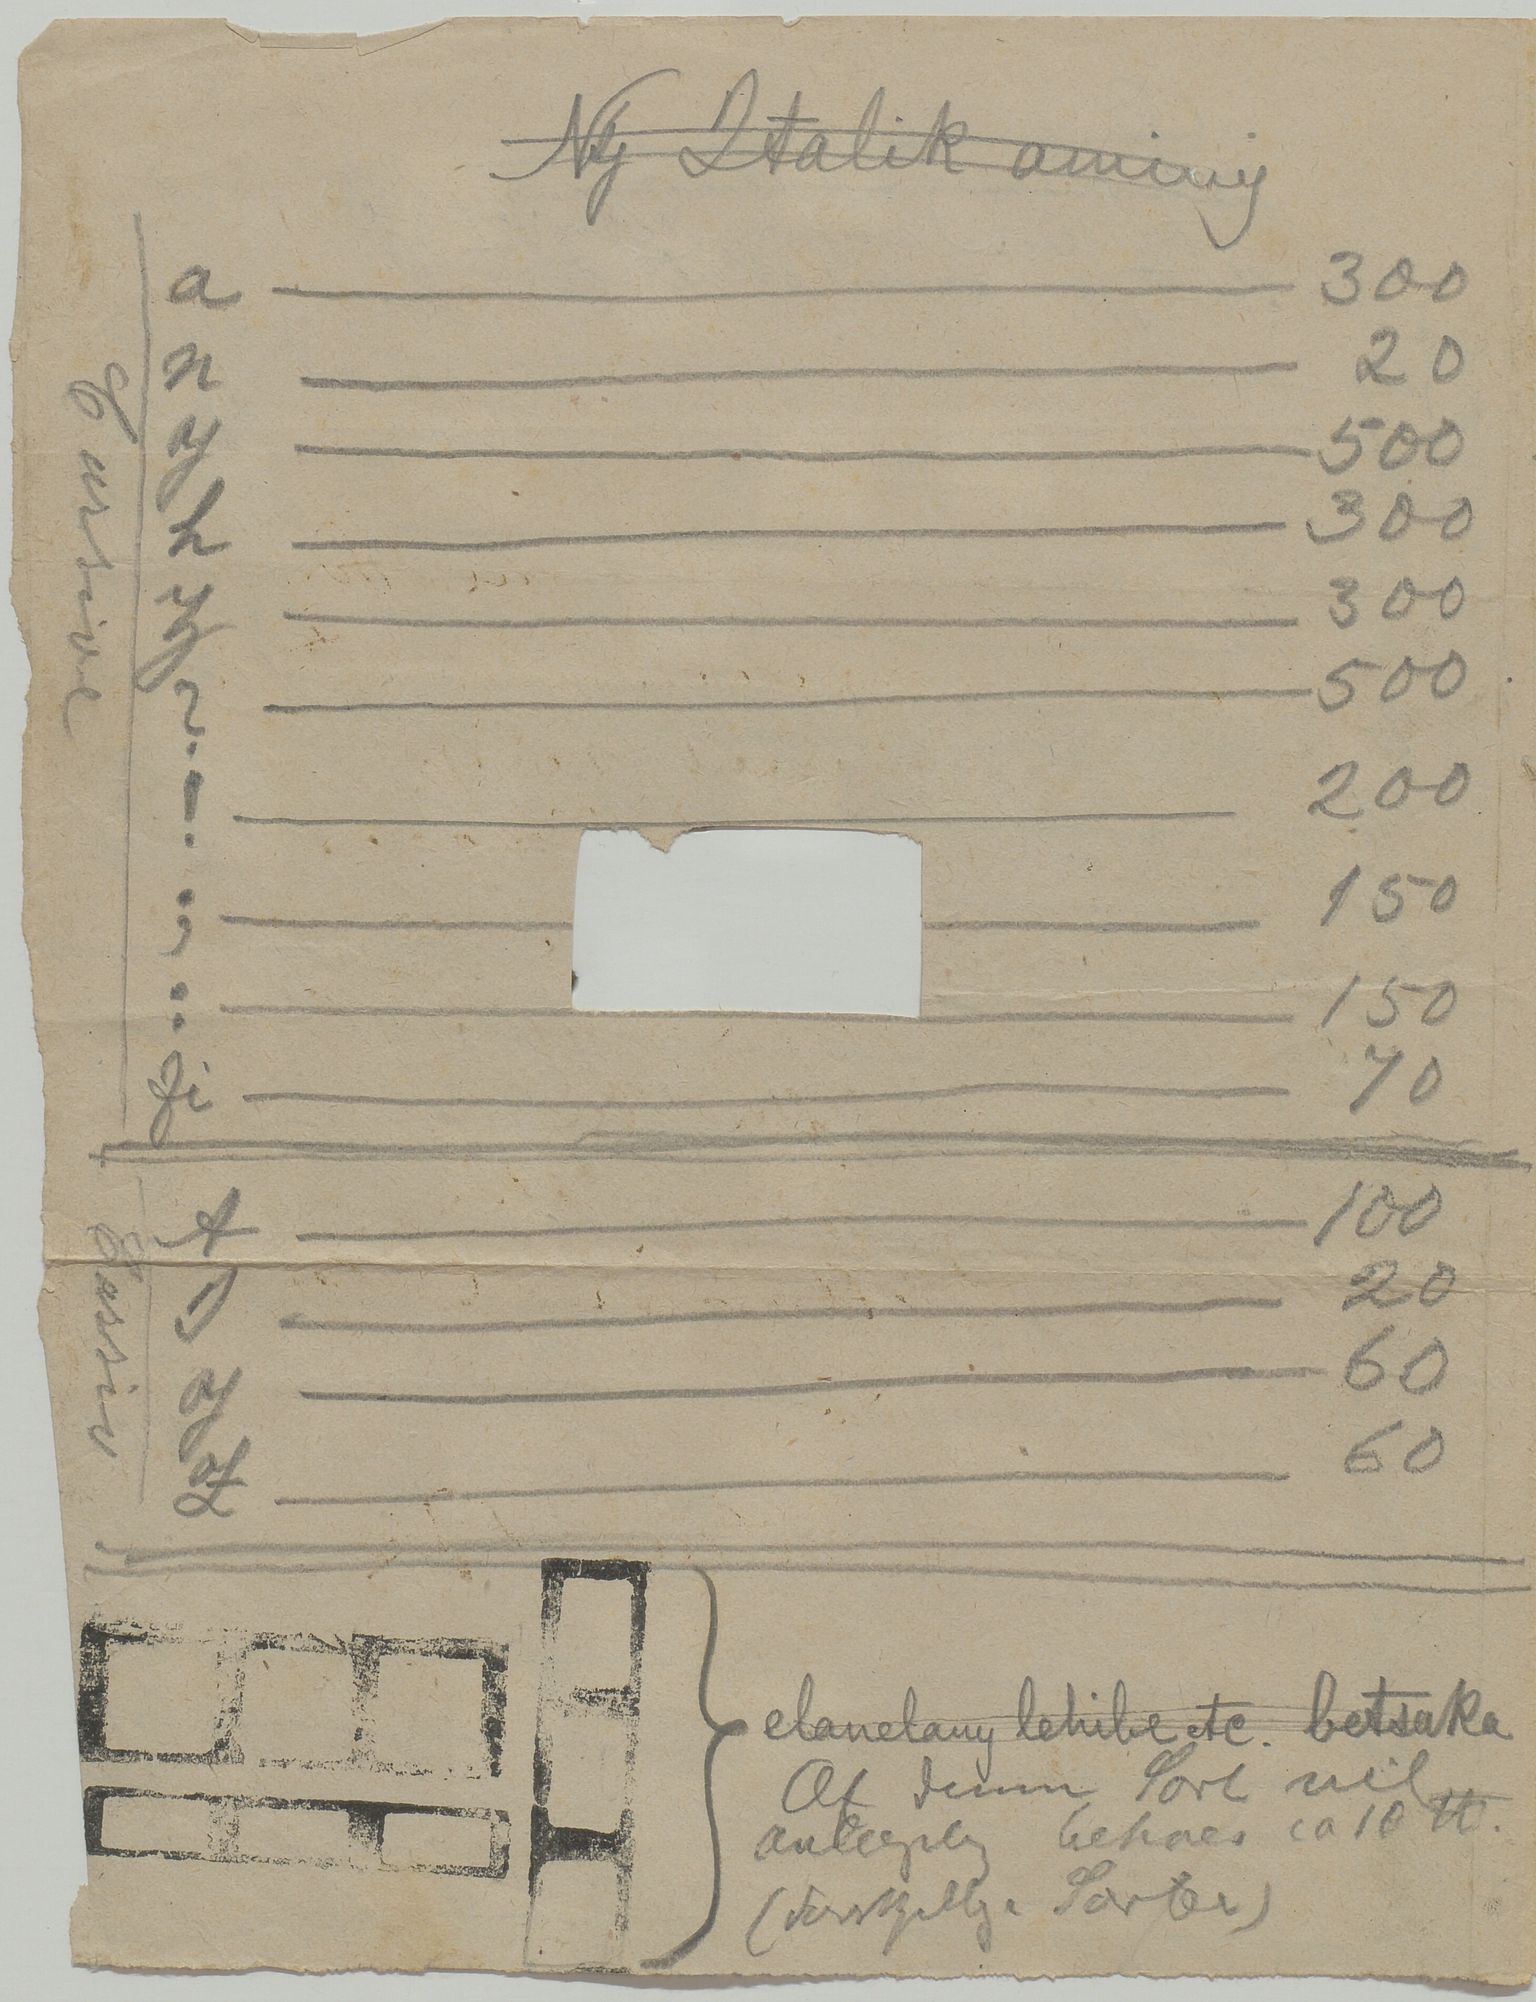 Ny Italik aminy
Cursive
a 300
n 20
y 500
h 300
y 300
? 500
! 200
; 150
: 150
fi 70
Cursiv
A 100
20
y 60
60
elanelany lehibe etc. betsaka
Af denne Sort vil
antagelig behøves ca 10 ℔.
(forskjellige Sorter)